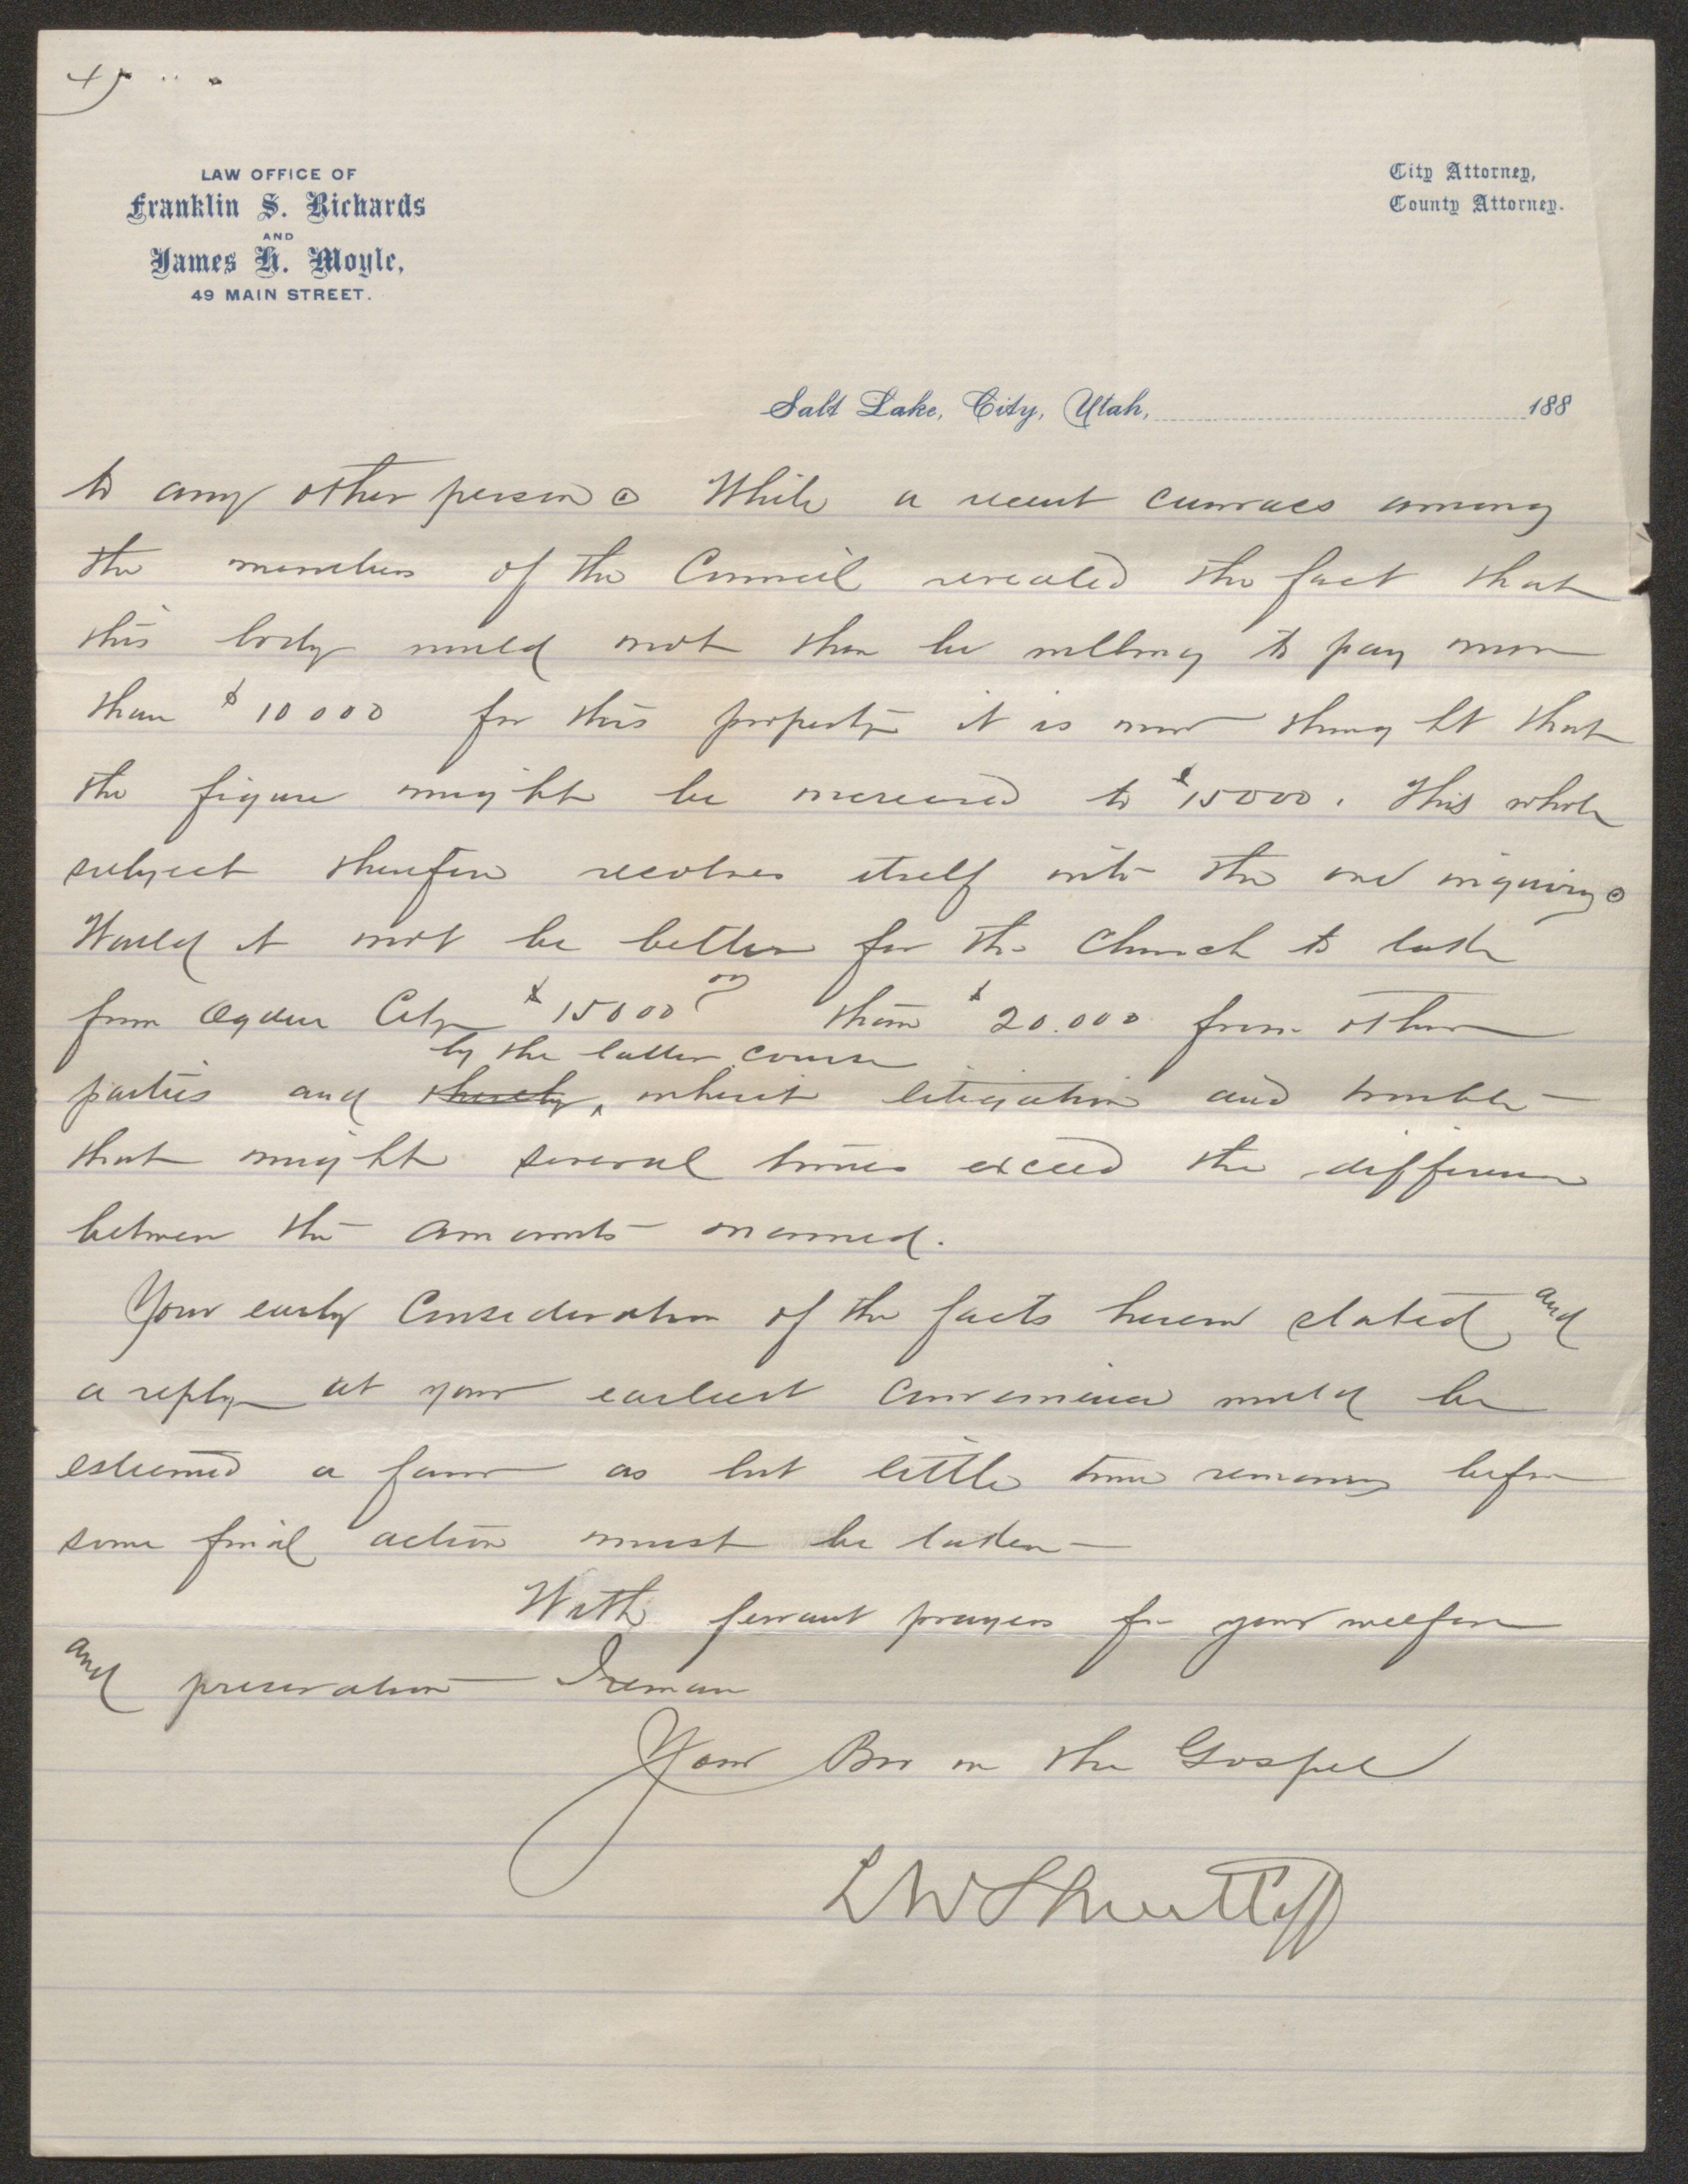 LAW OFFICE OF
Franklin S. Richards
AND
James H. Moyle,
49 MAIN STREET.
City Attorney,
County Attorney.
Salt Lake, City, Utah, 188
to any other person. While a recent canvass among
the members of the Council revealed the fact that
this body would not then be willing to pay more
than $10000 for this property it is now thought that
the figure might be increased to $15000. This whole
subject therefore resolves itself into the one inquiry.
Would it not be better for the Church to take
from Ogden City $15000 than $20.000 from other
by the latter course
parties and thereby inherit litigation and trouble
that might several times exceed the difference
between the amounts named.
Your early Consideration of the facts herein stated and
a reply at your earliest convenience would be
esteemed a favor as but little time remains before
some final action must be taken—
With fervant prayers for your welfare
and preservation I remain
Your Bro in the Gospel
L W Shurtliff